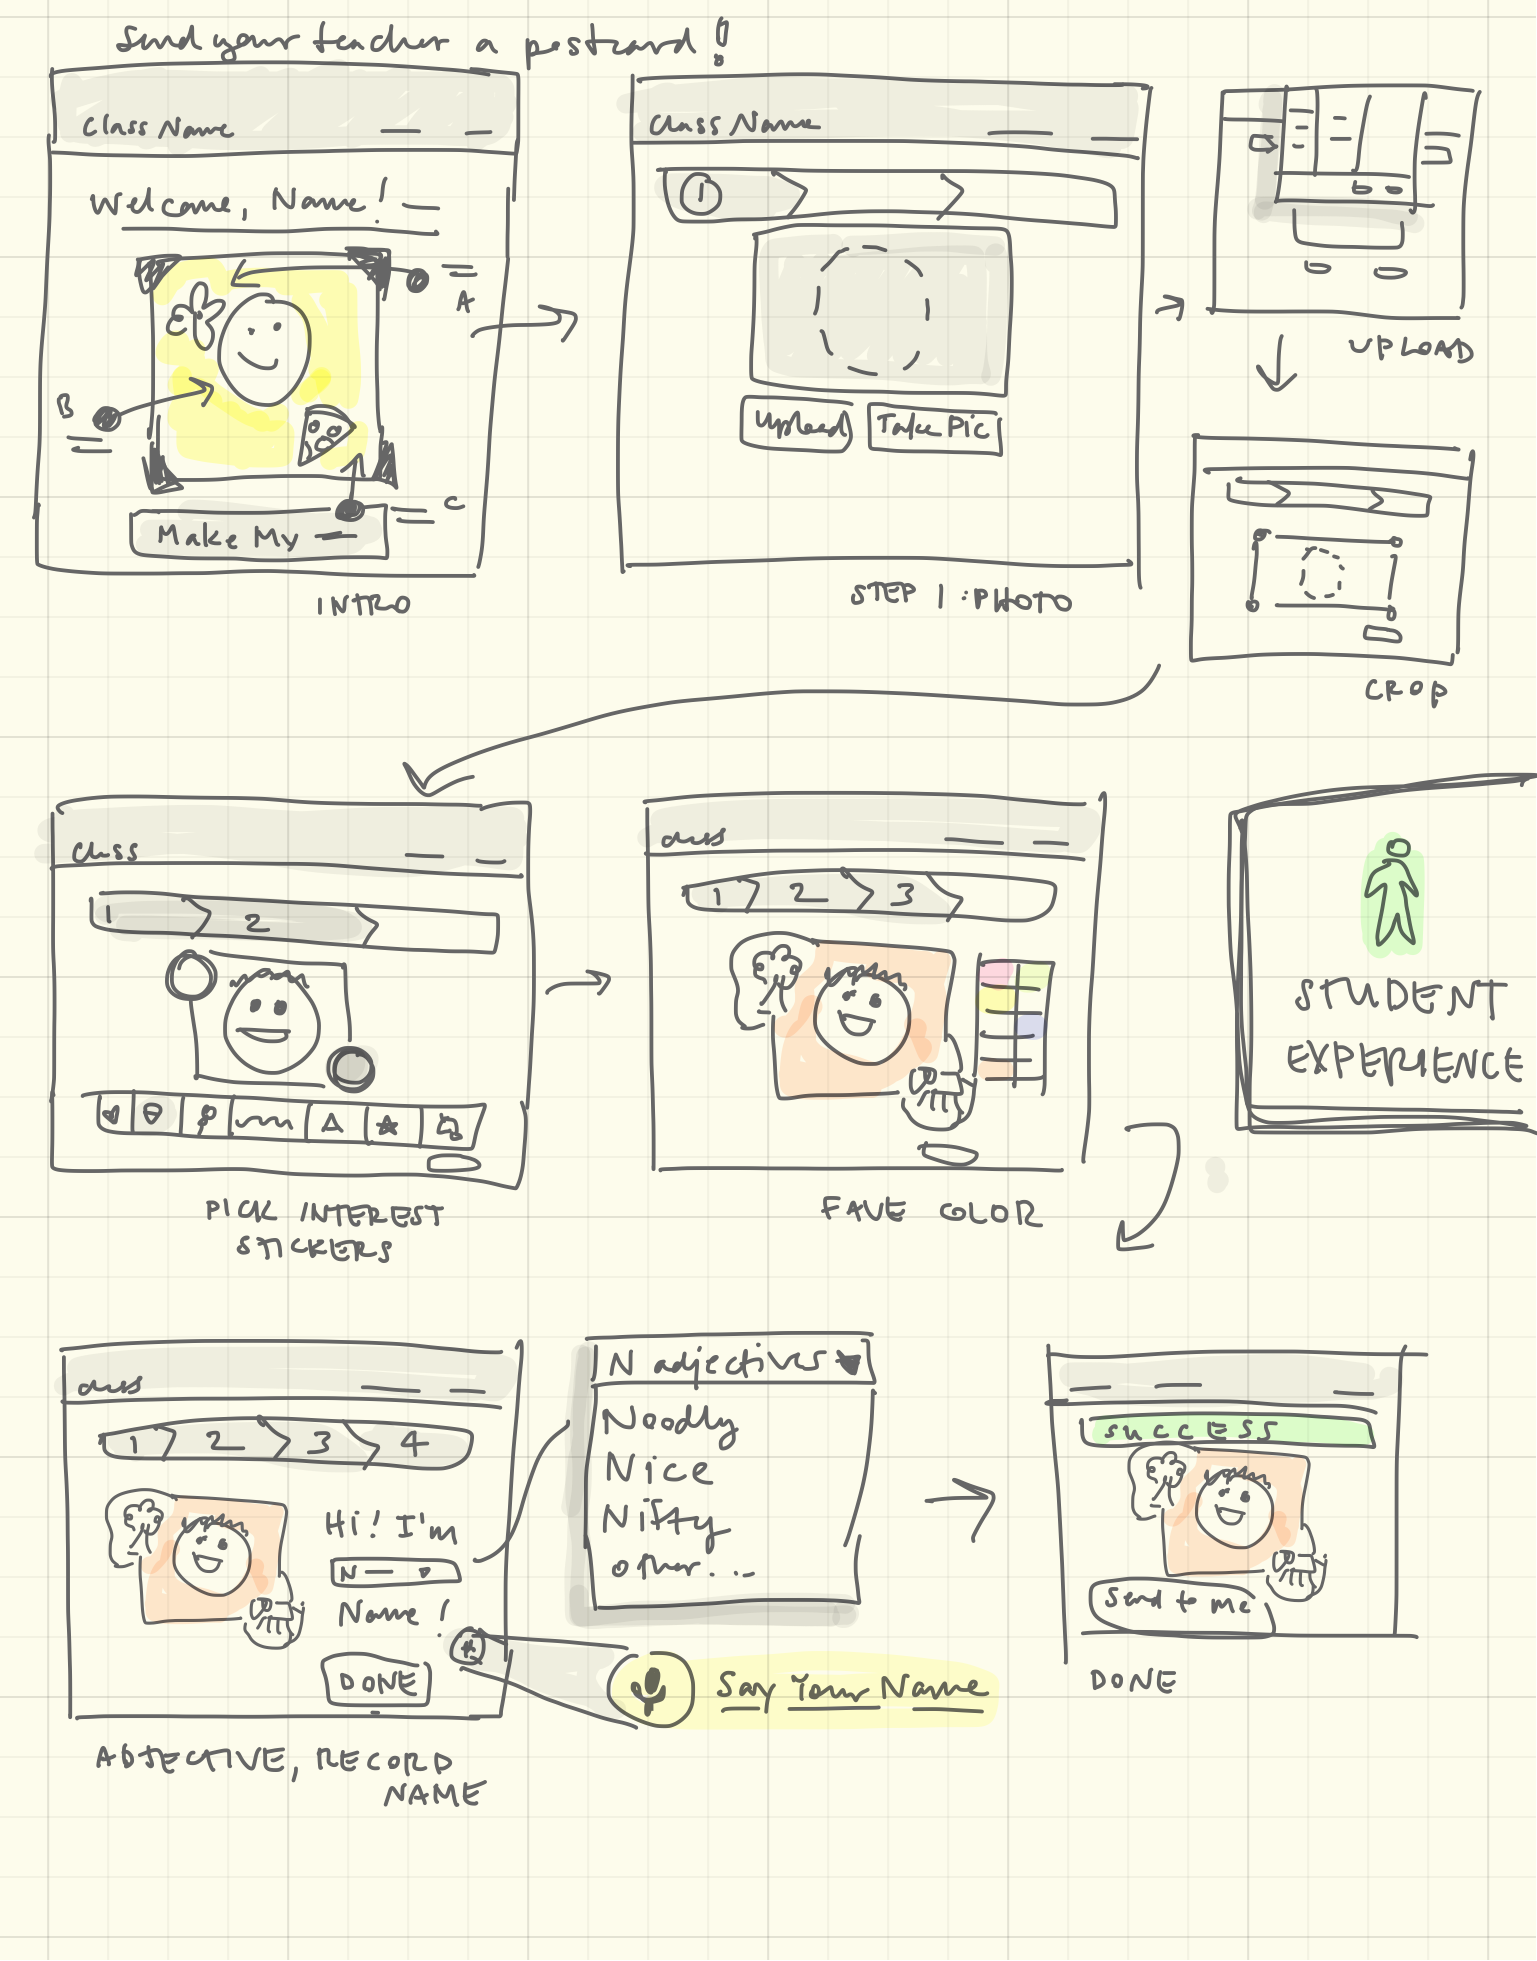 Send your teacher a postcard!
Class Name
Welcome, Name!
A
B
C
Make My
INTRO
Class Name
1
Upload
Take Pic
STEP 1: PHOTO
UPLOAD
CROP
Class
1 2
PICK INTEREST
STICKERS
class
1 2 3
FAVE COLOR
STUDENT
EXPERIENCE
class
1 2 3 4
Hi! I'm
N
Name!
DONE
ADJECTIVE, RECORD
NAME
N adjectives
Noodly
Nice
Nifty
other...
*
Say Your Name
SUCCESS
Send to me
DONE